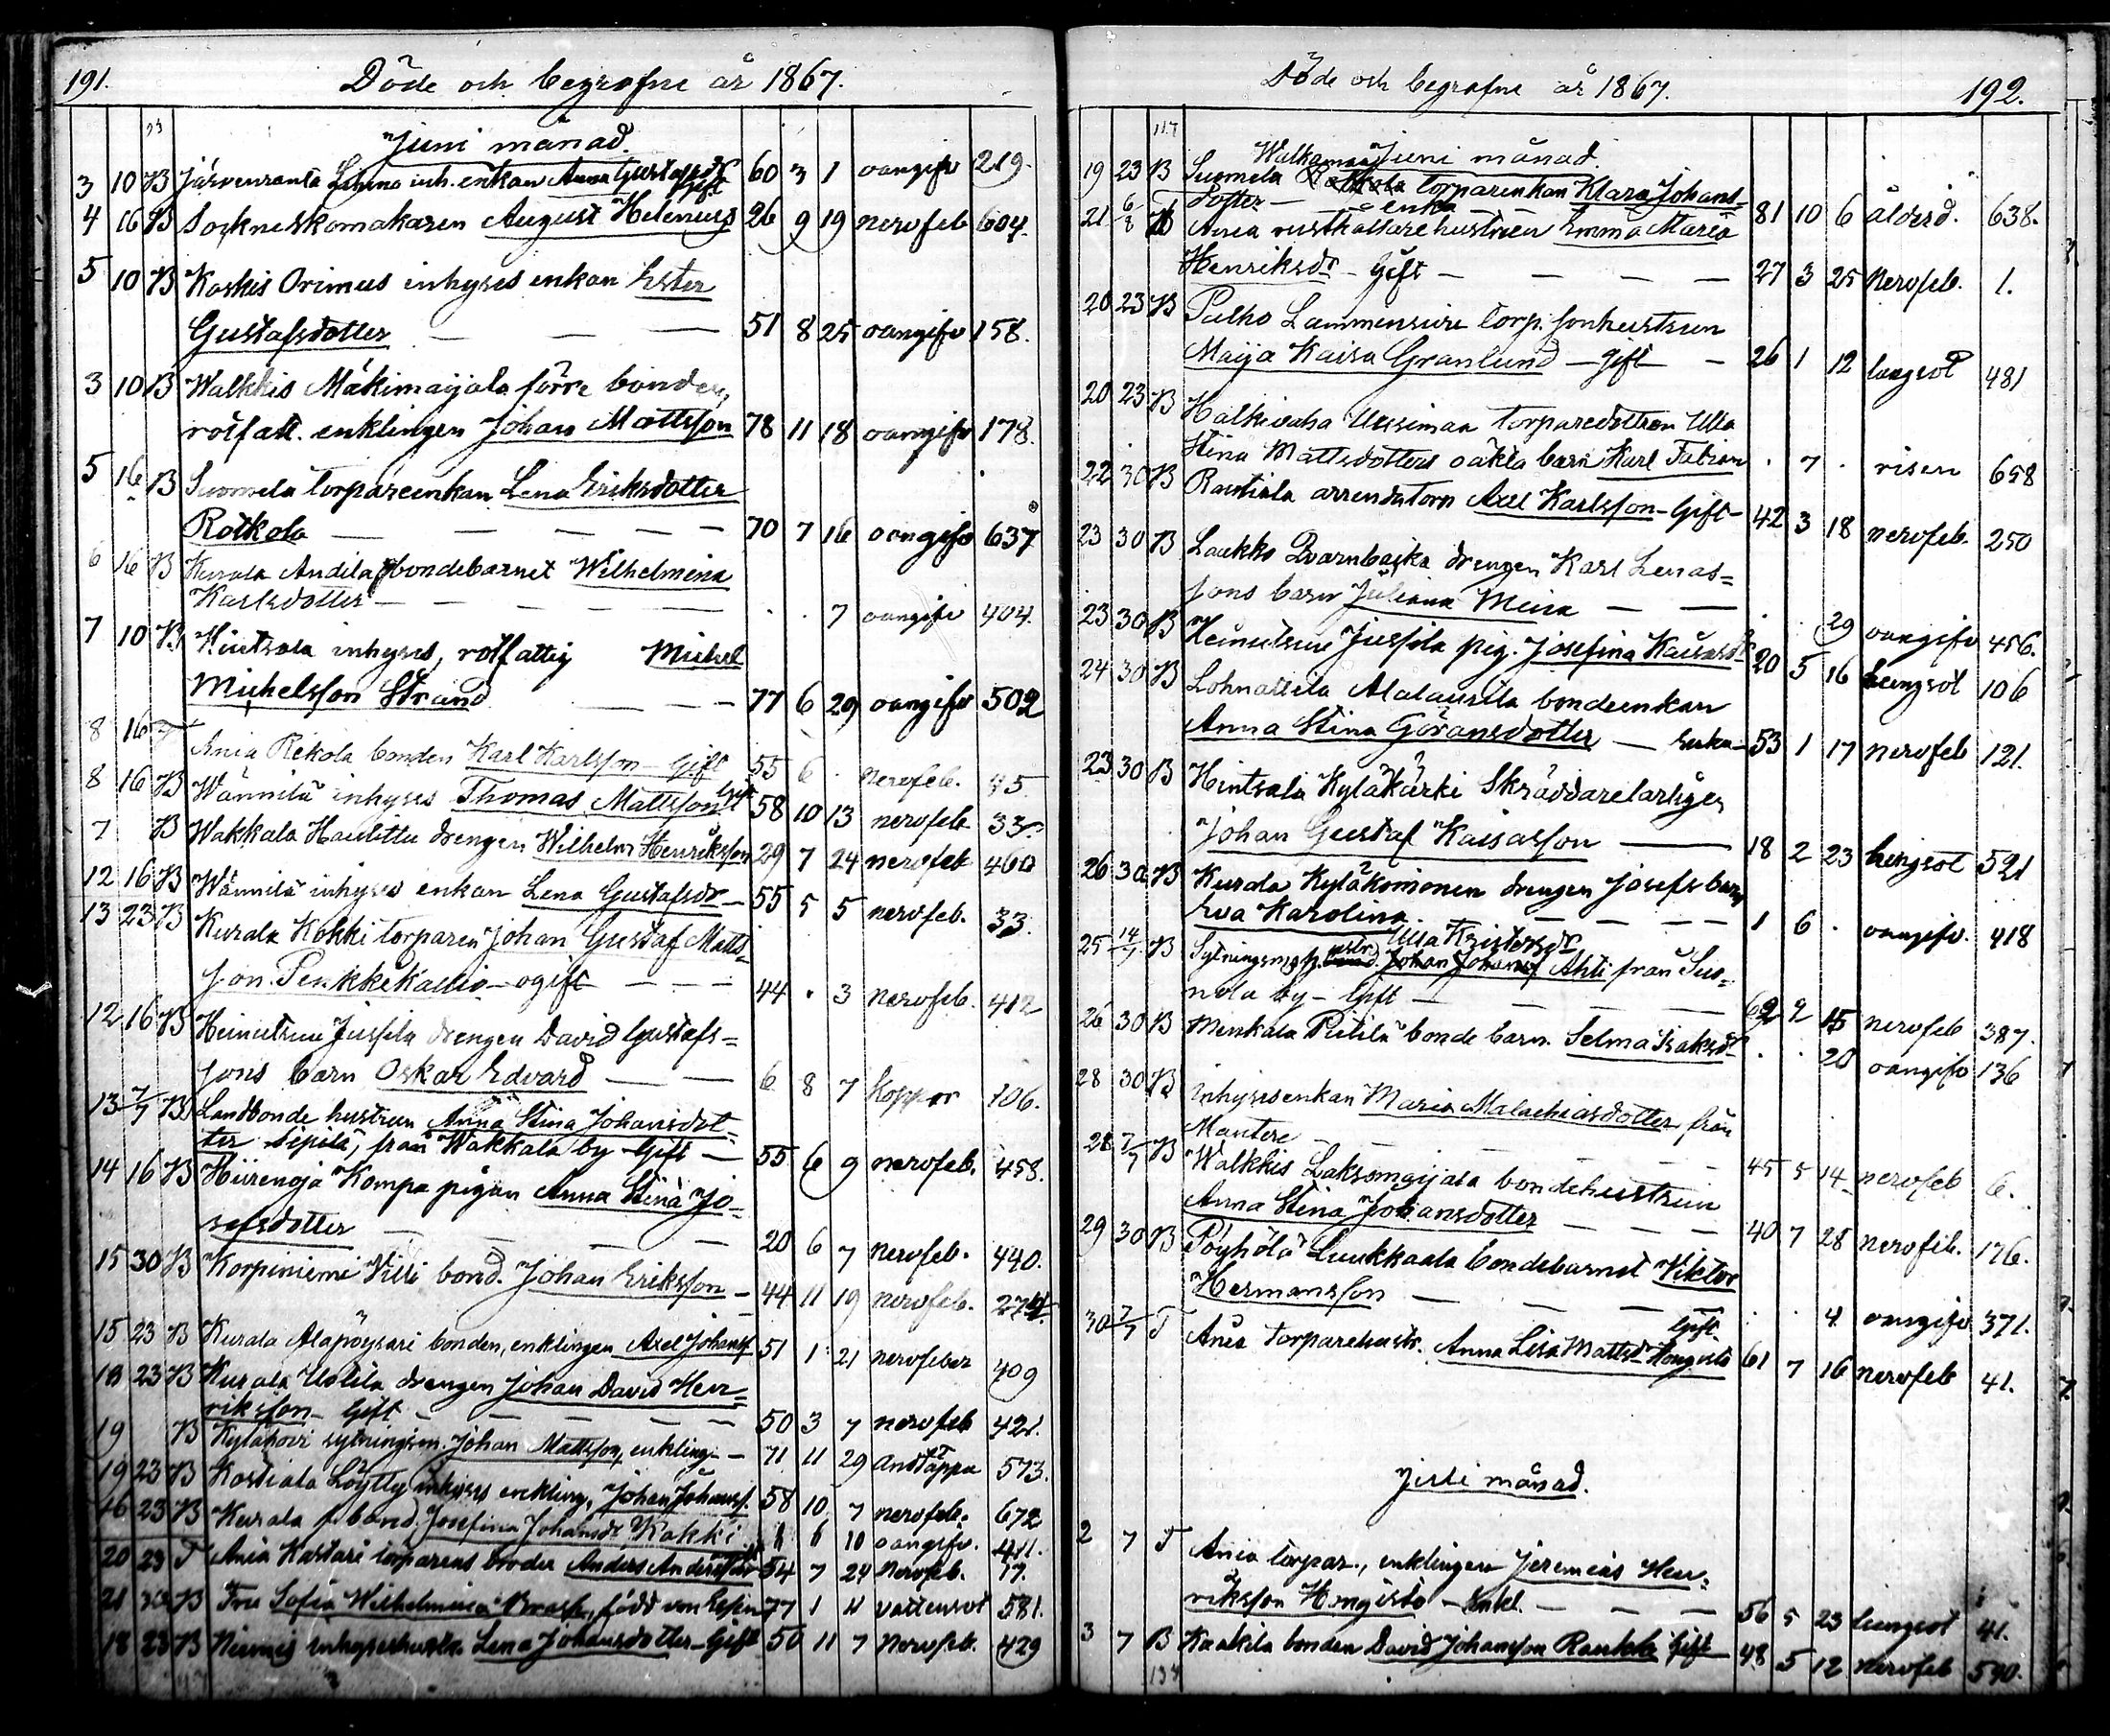 191.
Döde och begrafne år 1867.
23
Juni månad.
3 10 B Järvenranta Lehmo inh. enkan Anna Gustafsdr Gift 60 3 1 oangifv 219.
4 16 B Sockneskomakaren August Helenius 26 9 19 nervfeb 604.
5 10 B Koskis Orimus inhyses enkan Ester
Gustafsdotter — — 51 8 25 oangifv 158.
3 10 B Walkkis Mäkimaijala förre bonden,
rotfatt. enklingen Johan Mattsson 78 11 18 oangifv 178.
5 16 B Suomela torpareenkan Lena Eriksdotter
Rotkola — — — — 70 7 16 oangifv 637
6 16 B Kurala Andila bondebarnet Wilhelmina
Karlsdotter — — — — . 7 oangifv 404.
7 10 B Hintsala inhyses, rotfattig Michel
Michelsson Strand — — — 77 6 29 oangifv 502
8 16 T Ania Rekola bonden Karl Karlsson — Gift 55 6 . nervfeb. 45.
8 16 B Wännilä inhyses Thomas Mattsson Gift 58 10 13 nervfeb 33.
7 B Wakkala Haulittu drengen Wilhelm Henriksson 29 7 24 nervfeb 460
12 16 B Wännilä inhyses enkan Lena Gustafsdr — 55 5 5 nervfeb. 33.
13 23 B Kurala Kokki torparen Johan Gustaf Matts-
son Penkkekallio — ogift — — — 44 . 3 nervfeb. 412
12 16 B Heinutsuu Jussila drengen David Gustafs=
sons barn Oskar Edvard — — 6 8 7 koppor 106.
13 7/7 B Landbonde hustrun Anna Stina Johansdot-
ter Sepilä, från Wakkala by — Gift — 55 6 9 nervfeb. 458.
14 16 B Hiirenoja Kompa pigan Anna Stina Jo-
sefsdotter — — — — 20 6 7 nervfeb. 440.
15 30 B Korpiniemi Villi bond. Johan Eriksson — 44 11 19 nervfeb. 274.
15 23 B Kurala Alapöysari bonden, enklingen Axel Johanss. 51 1 21 nervfeber 409
18 23 B Kurala Uotila drengen Johan David Hen-
riksson — Gift — — — — 50 3 7 nervfeb 421.
19 B Kyläpovi sytningsm. Johan Mattsson, enkling — 71 11 29 andtäppa 573.
19 23 B Kostiala Löytty inhyses enkling, Johan Johanss. 58 10 7 nervfeb. 672
16 23 B Kurala f. bond. Josefina Johansdr Kokki 6 10 oangifv. 411.
20 23 T Ania Kastari torparens broder Anders Andersson 54 7 24 Nervfeb. 17.
21 30 B Fru Sofia Wilhelmina Brasse, född von Essen 77 1 11 vattensot 581.
18 23 B Niemis inhyseshustr. Lena Johansdotter — Gift 50 11 7 Nervfeb. 429
Döde och begrafne år 1867.
192.
117
Juni månad.
19 23 B Suomela Walkamaa Rotkola torparenkan Klara Johans=
dotter — enka — — 81 10 6 ålderd. 638.
21 6/8 T Ania rusthållarehustrun Emma Maria
Henriksdr — Gift — — — — 27 3 25 Nervfeb. 1.
20 23 B Palho Lammensivu torp. sonhustrun
Maija Kaisa Granlund — gift — 26 1 12 lungsot 481
20 23 B Halkivaha Uusimaa torparedottren Ulla
Stina Mattsdotters oäkta barn Karl Fabian . 7 . risen 658
22 30 B Rautiala arrendatorn Axel Karlsson — Gift — 42 3 18 nervfeb. 250
23 30 B Laukko Qvarnbacka drengen Karl Lenas=
sons barn Juliana Mina — — . . 29 oangifv 456.
23 30 B Heinutsuu Jussila pig. Josefina Kaisasdr 20 5 16 lungsot 106
24 30 B Lohnattila Alalaurila bondeenkan
Anna Stina Göransdotter — Enka — 53 1 17 nervfeb 121.
23 30 B Hintsala Kyläkärki Skräddarelärlingen
Johan Gustaf Kaisasson — 18 2 23 lungsot 521
26 30 B Kurala Kyläkomonen drengen Josefs barn
Eva Karolina. — — — — 1 6 . oangifv. 418
25 14/7 B Sytningsm. hustr. Ulla Kristersdr Johan Johanss Ahti från Suo-
nola by — Gift — — — — 62 2 15 nervfeb 387.
26 30 B Menkala Pietilä bonde barn. Selma Isaksdr . . 20 oangifv 136
28 30 B Inhysesenkan Maria Malachiasdotter från
Mantere — — — — 45 5 14 nervfeb 6.
28 7/7 B Walkkis Laksomaijala bondehustrun
Anna Stina Johansdotter — — — 40 7 28 nervfeb. 176.
29 30 B Pöyhölä Luukkaala bondebarnet Viktor
Hermansson — — — — . . 4 oangifv 371.
30 7/7 T Ania Torparehustr. Anna Lisa Mattsdr Hongisto Gift 61 7 16 nervfeb 41.
Juli månad.
2 7 T Ania torpar., enklingen Jeremias Hen-
riksson Hongisto — Enkl. — — — 56 5 23 lungsot 41.
3 7 B Kaakila bonden David Johansson Raukka Gift 48 5 12 nervfeb 590.